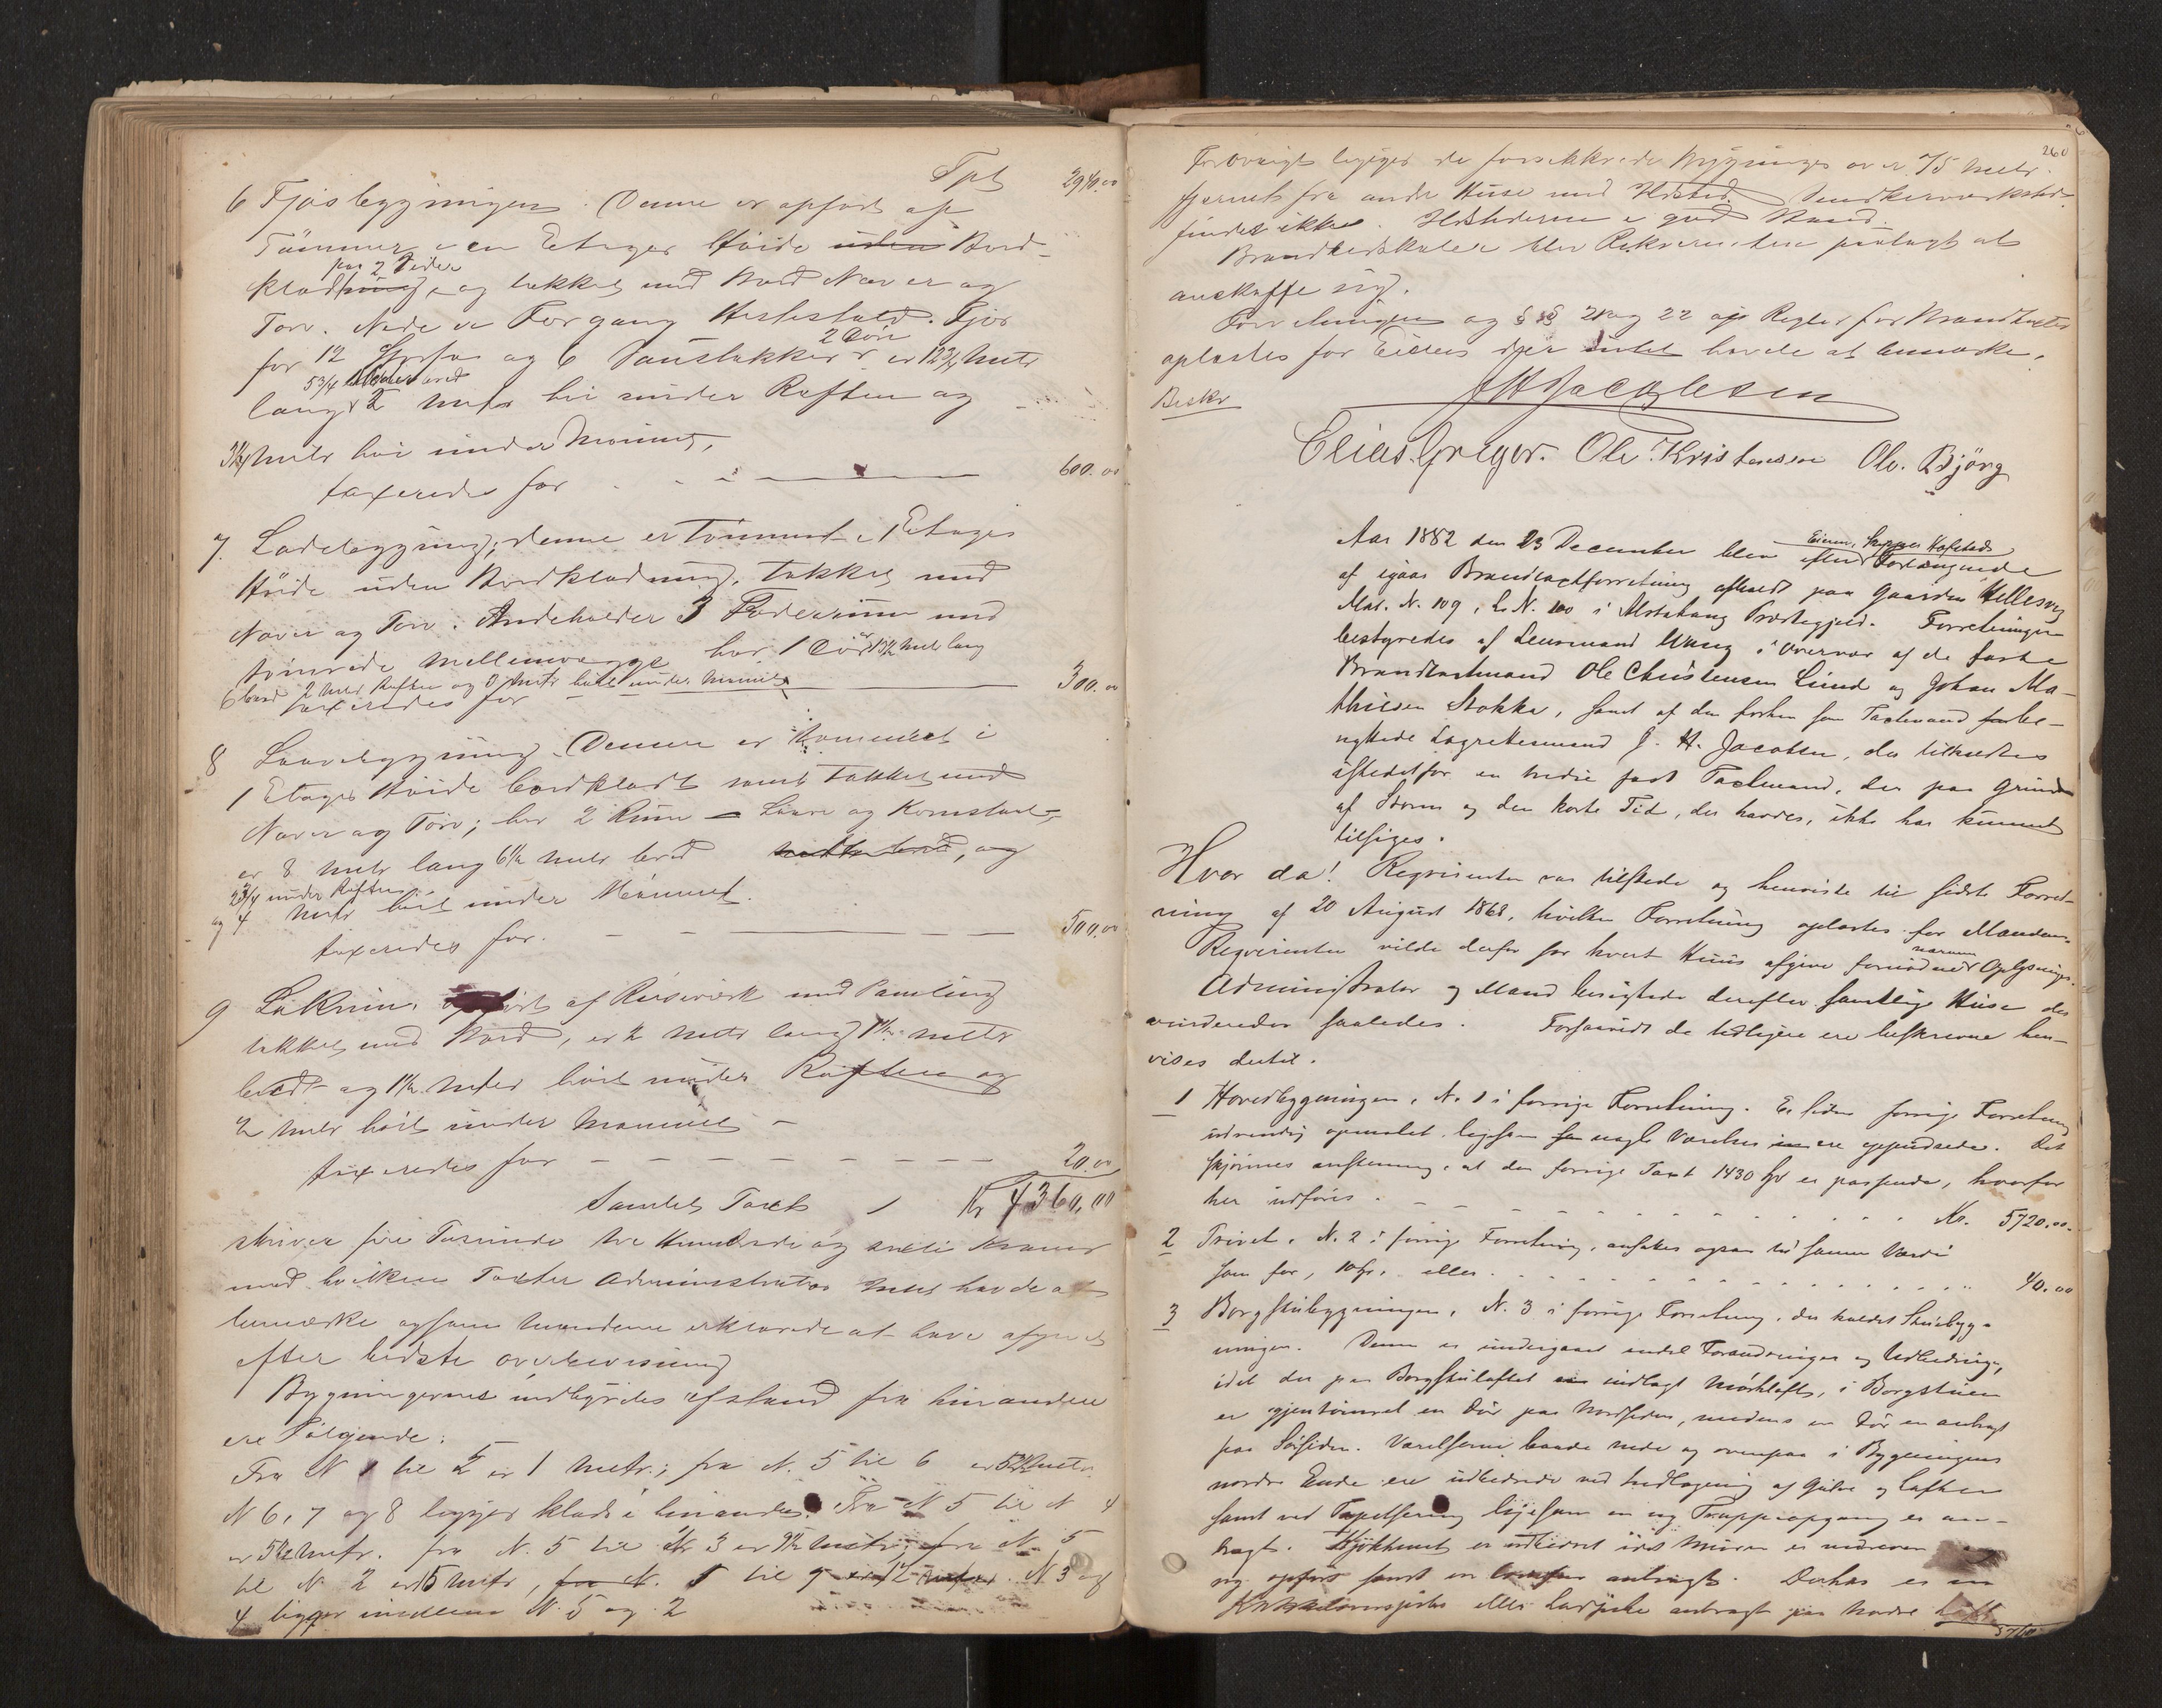 Tpt 2940.00
6 Fjøsbygningen. Denne er opført af
Tømmer i en Etages Høide uden Bord-
paa 2 Sider
klædning, og tækket med Bord Næver og
Torv. Nede er Forgang Hestestald. Fjøs
2 Døre
for 12 og 6 er 12 3/4 Metr
5 3/4 bred
lang 2 Metr høi under Raften og
3 1/4 Metr høi under Mønnet,
taxeredes for 600.00
7. Ladebygning; denne er Tømmret i 1 Etages
Høide uden Bordklædning, Tækket med
Næver og Torv. Indeholder 3 Foderrum med
tømrede Mellemvægge har 1 Dør 13 1/2 Metr lang
6 bred 2 Metr Raften og 3 Metr høit under Mønnet
taxeredes for 300.00
8 Laavebygning. Denne er Tømmret i
1 Etages Høide bordklædt samt Tækket med
Næver og Torv; har 2 Rum Laave og Kornstal,
er 8 Metr lang 6 1/2 Metr bred og
2 3/4 under Raften
og 4 Metr høit under Mønnet.
taxeredes for 500.00
9 opført af Reisværk med Panling
tækket med Bord, er 2 Metr lang 1 1/2 Metr
bredt og 1 1/2 Meter høit under Raften og
2 Metr høit under Mønnet
taxeredes for 20.00
Samlet Taxt Kr 4360,00
skriver fire Tusinde tre Hundrede og sexti Kroner
med hvilken Taxter Administrator Intet havde at
bemærke ogsom Mændene erklærede at have afgivet
efter bedste overbevisning
Bygningernes indbyrdes afstand fra hinanden
ere Følgende:
Fra N 1 til 2 er 1 Metr; fra N. 5 til 6 er 5 Metr
N 6, 7 og 8 ligger klods i hinanden. Fra N 5 til N 4
er 5 1/2 Metr. fra N. 5 til Nr 3 er 9 1/2 Metr; fra N. 5
til N 2 er 15 Metr, fra N. 5 til 9 er 12 Metr. N 3 og
4 ligger imellem N. 5 og 2
260
Forøvrigt ligger de forsikkrede Bygninger over 75 Metr.
fjernet fra andre Huse med Ildsted. Snedkerværksted
findes ikke. Ildstederne i god Stand.
Brandredskaber blev Rekvirenten paalagt at
anskaffe sig.
Forretningen og §§ 21 og 22 af Regler for Brandtaxter
oplæstes for Eieren der intet havde at bemærke.
Beskr JHJacobsen
Elias. Greger. Ole. Kristensen Ole. Bjørg
Aar 1882 den 23 December blev efter Forlangende
Eieren, Skipper Hofstads
af igaar Brandtaxtforretning afholdt paa Gaarden Hellesvig
Mat. N. 109, L. N. 100 i Alstahaug Præstegjeld. Forretningen
bestyredes af Lensmand Wang i Overvær af de faste
Brandtaxtmænd Ole Christensen Lund og Johan Ma-
thiesen Stokka, samt af den forhen som Taxtmand be-
nyttede Lagrettesmand J. H. Jacobsen, da tilkaldtes
istedetfor en tredie fast Taxtmand, der paa Grund
af Storm og den korte Tid, der havdes, ikke har kunnet
tilsiges.
Hvor da! Reqvirenten var tilstede og henviste til sidste Forret-
ning af 20 August 1868, hvilken Forretning oplæstes for Mændene.
Reqvirenten vilde derfor for hvert Huus afgive fornødne nærmere Oplysninger.
Administrator og Mænd besigtede derefter samtlige Huse der
vurderedes saaledes. Forsaavidt de tidligere ere beskrevne hen-
vises dertil.
1 Hovedbygningen, N. 1 i forrige Forretning. Er siden forrige Forretning
udvendig opmalet, ligesom nogle Værelser ere oppudsede. Det
skjønnes enstemmig, at den forrige Taxt 1430 Spd er passende, hvorfor
her udføres Kr. 5720.00.
2 Privet, N. 2 i forrige Forretning, ansattes ogsaa til samme Værdi
som før, 10 Spd, eller 40.00
3 Borgstubygningen, N. 3 i forrige Forretning, der kaldet Stuebyg-
ningen. Denne er undergaaet endel Forandringer og Udbedring,
idet der paa Borgstuloftet indlagt Mørklofts, i Borgstuen
er gjentømret en Dør paa Nordsiden, medens en Dør er anbragt
paa Sørsiden. Værelserne baade nede og ovenpaa i Bygningens
nordre Ende ere udbedrede ved Indlægning af Gulve og Lofter
samt ved Tapetsering ligesom en ny Trappeopgang er an-
bragt. Kjøkkenet er udbedret idet Muren er nedreven og
ny opført samt en anbragt. Derhos er en
Kakkelovnspibe eller Ladpibe anbragt paa Nordre
5760